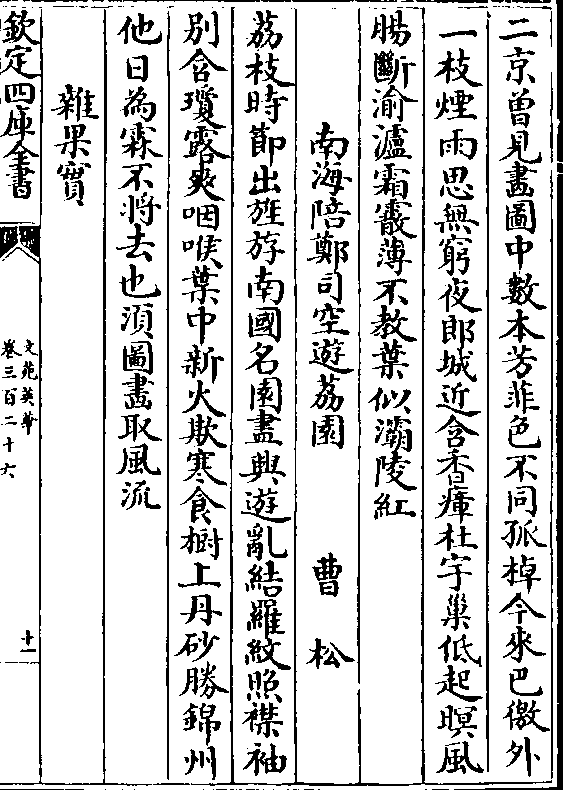 二京曽見畫圖中數本芳菲色不同孤棹今來巴徼外
一枝煙雨思無窮夜郎城近含香瘴杜宇巢低起暝風
腸斷渝瀘霜霰薄不教葉似灞陵紅
南海陪鄭司空遊荔園　曹松
荔枝時節出旌斿南國名園盡興遊亂結羅紋照襟袖
別含瓊露爽咽喉葉中新火欺寒食樹上丹砂勝錦州
他日為霖不將去也湏圖畫取風流
雜果實
欽定四庫全書
文苑英華
卷三百二十六
十一